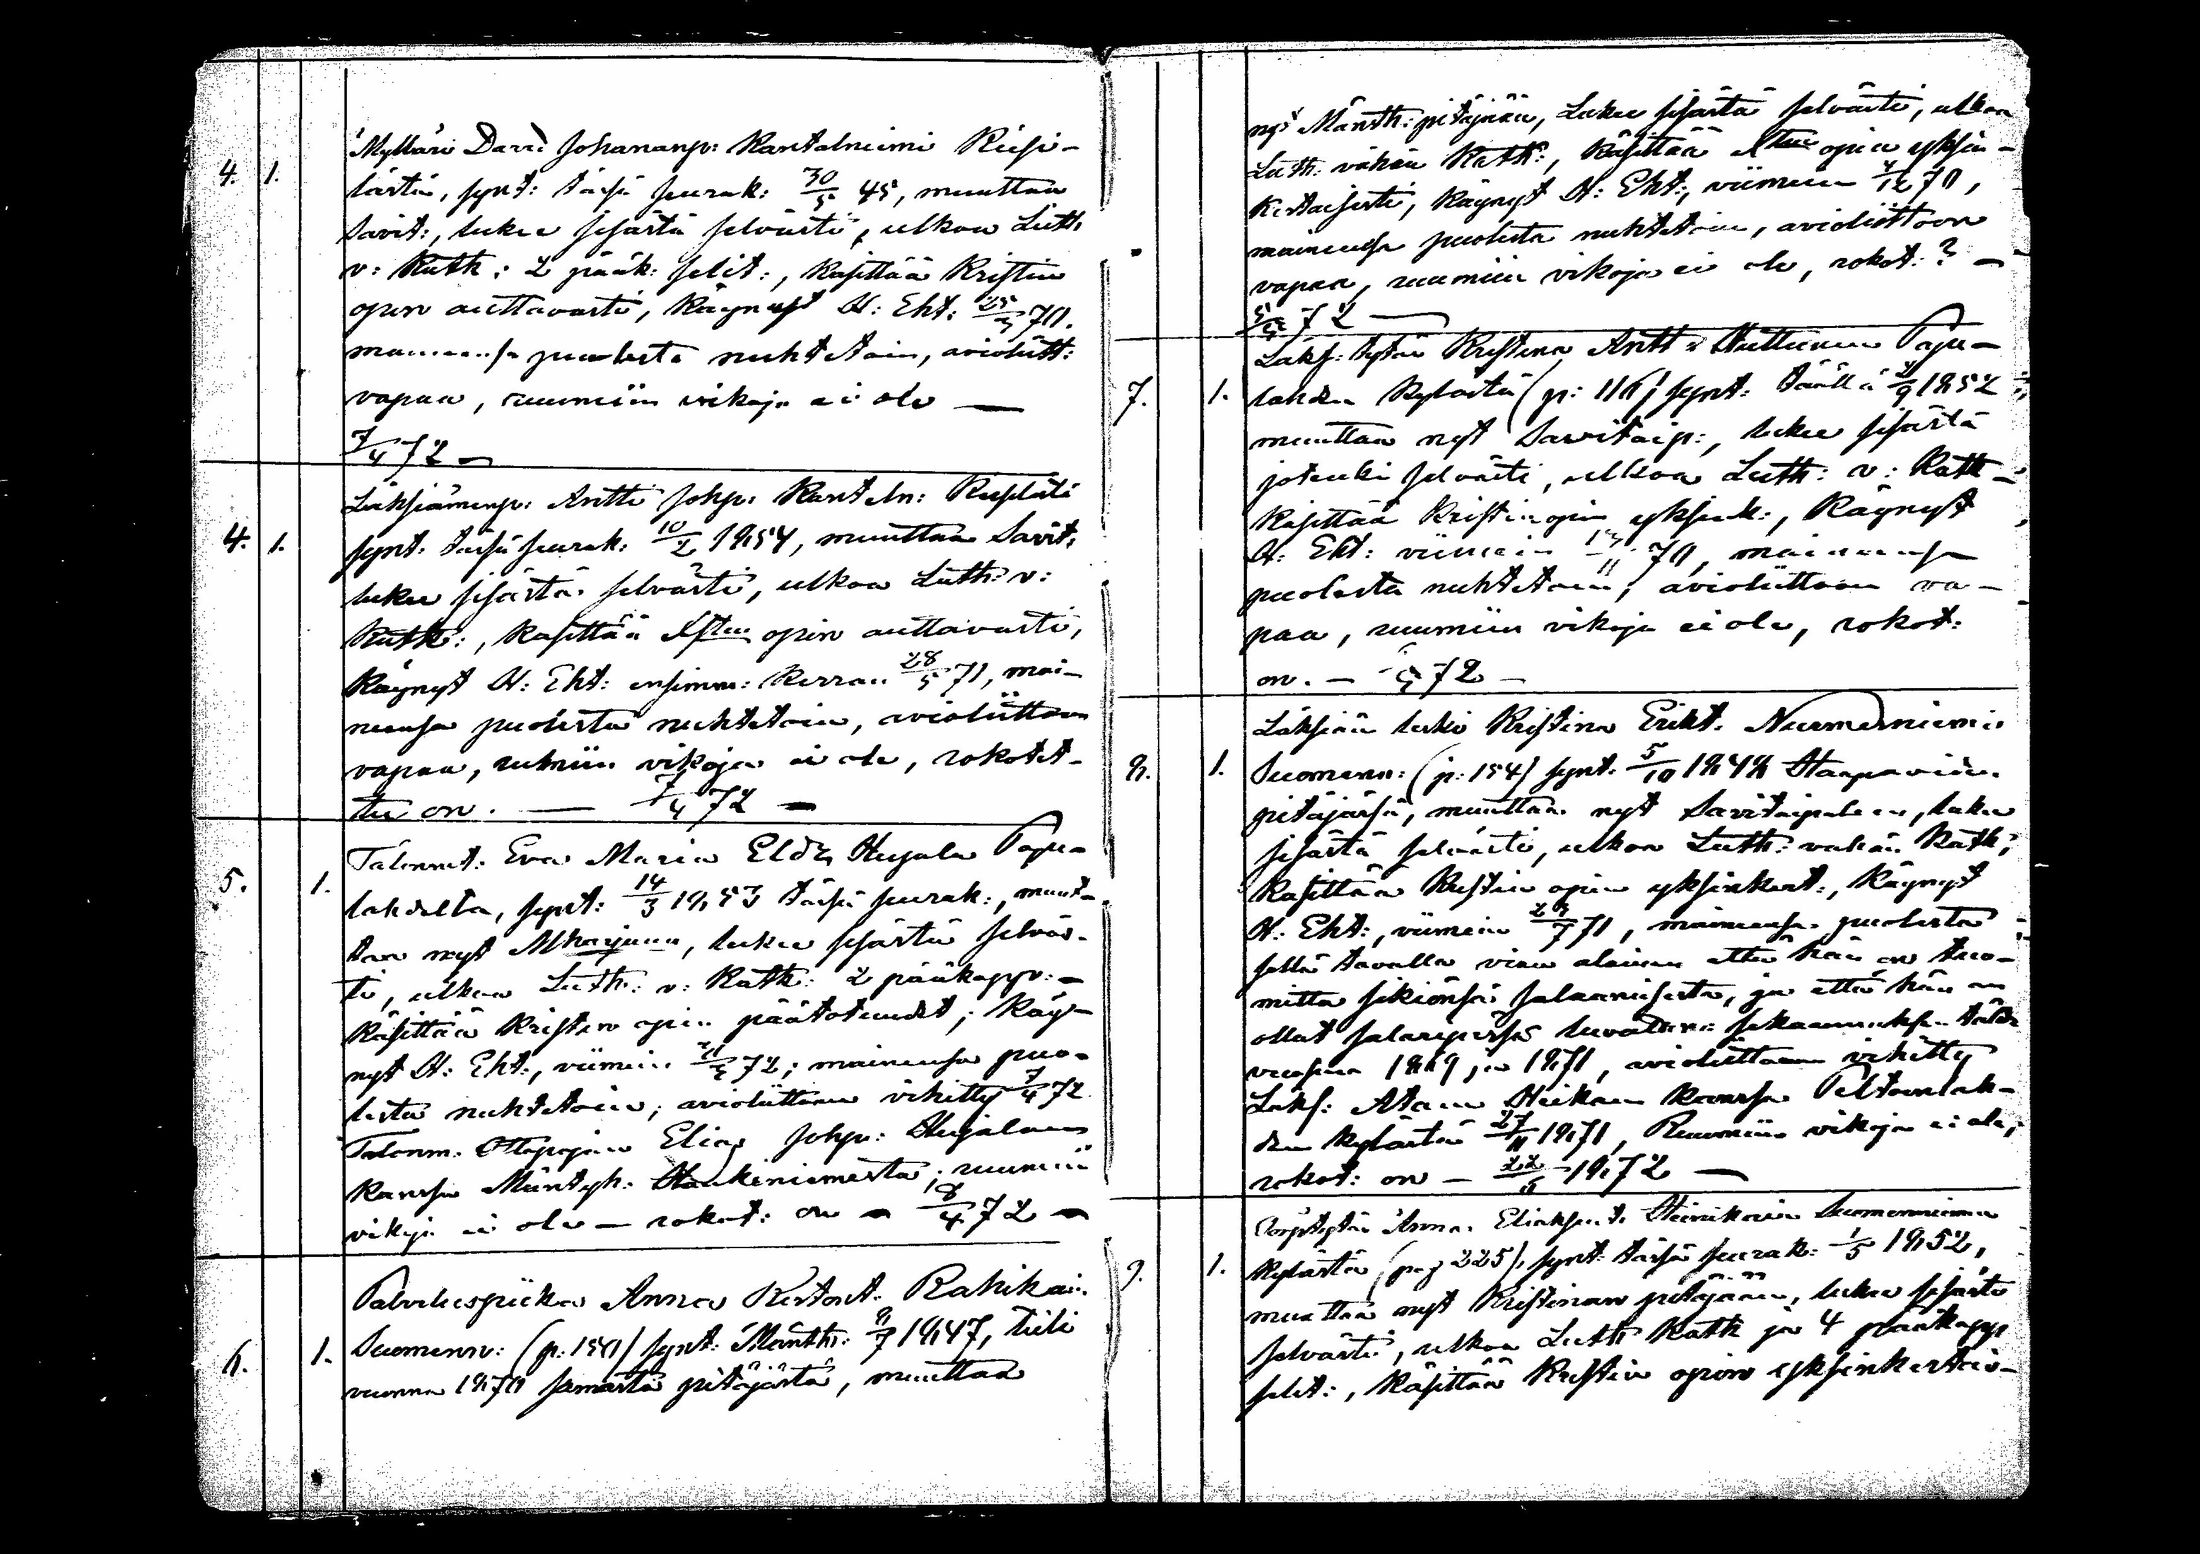 4. 1. Mylläri David Johananp: Kantalniemi Riisi-
läistä, synt: täsä seurak: 30/5 45, muuttaa
Savit:, lukee sisästä selvästi, ulkoa Luth.
v: Kath: 2 pääk: selit:, käsittää Kristin
opin auttavasti, käynyt H: Eht: 70.
maineensa puolesta nuhtetoin, avioliitt:
vapaa, ruumiin vikoja ei ole —
7/4 72 —
4. 1. Läksiämenp: Antti Johp: Kanteln:
synt. täsä seurak: 10/2 1854, muuttaa Savit.
lukee sisästä selvästi, ulkoa Luth: v:
Kath:, käsittää opin auttavasti,
käynyt H: Eht: ensimm: kerran 28/5 71, mai-
neensa puolesta nuhtetoin, avioliittoon
vapaa, ruumiin vikoja ei ole, rokotet-
tu on. — 7/4 72 —
5. 1. Talonmt: Eva Maria Hujala Papu-
lahdelta, synt: 14/3 1853 täsä seurak:, muut-
taa nyt, lukee sisästä selväs-
ti, ulkoa Luth: v: Kath: 2 pääkapp: -
käsittää Kristin opin päätotuudet; käy-
nyt H: Eht:, viimein 72; maineensa puo-
lesta nuhtetoin; avioliittoon vihitty 7/4 72
Talonm. Ottopojan Elias Johp: Hujalan
kanssa Mäntyh: Haukiniemestä; ruumiin
vikoja ei ole — rokot: on — 8/4 72 —
6. 1. Palveluspiika Anna Ristont. Rahikai.
Suomenn: (p: 150) synt: Mänth: 8/7 1847, tuli
vuonna 1870 samasta pitäjästä, muuttaa
nyt Mänth: pitäjään, lukee sisästä selvästi, ulkoa
Luth: vähän Kath:, käsittää opin yksin-
kertaisesti, käynyt H: Eht:, viimein 70,
maineensa puolesta nuhtetoin, avioliittoon
vapaa, ruumiin vikoja ei ole, rokot: ? —
72 —
7. 1. Läks: tytär Kristina Antt: Huttunen Papu-
lahden kylästä (p: 116) synt: täällä 1852
muuttaa nyt Savitaip:, lukee sisästä
jotenki selvästi, ulkoa Luth: v: Kath -
käsittää Kristin opin yksink:, käynyt
H: Eht: viimein 70, maineensa
puolesta nuhtetoin, avioliittoon va-
paa, ruumiin vikoja ei ole, rokot:
on. — 72 —
8. 1. Läksiän leski Kristina Erikt. Nurmelniemi
Suomenn: (p: 154) synt. 5/10 1848 Haapaveden
pitäjäsä, muuttaa nyt Savitaipaleen, lukee
sisästä selvästi, ulkoa Luth: vähän Kath;
käsittää Kristin opin yksinkert:, käynyt
H: Eht:, viimein 71, maineensa puolesta
sillä tavalla vian alainen että hän on tuo-
mittu sikiönsä salaamisesta, ja että hän on
ollut salavuoteessa
vuosina 1869 ja 1871, avioliittoon vihitty
Läks: Atam Heikin kanssa Peltoinlah-
den kylästä 27/11 1871, Ruumiin vikoja ei ole,
rokot: on — 1872 —
9. 1. Anna Eliakset. Heinikain Suomenniemen
kylästä (pag 225), synt: täsä seurak: 1/5 1852,
muuttaa nyt Kristinan pitäjään, lukee sisästä
selvästi, ulkoa Luth Kath ja 4 pääkapp
selit:, käsittää Kristin opin yksinkertais-